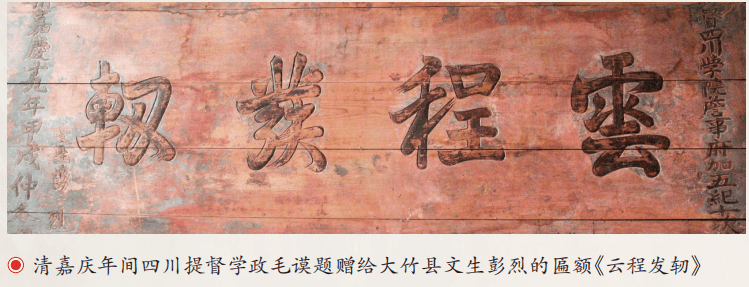 督四川学院詹事府加五紀十次
雲程發軔
彭烈
嘉慶十九年甲戌仲冬
清嘉庆年间四川提督学政毛谟题赠给大竹县文生彭烈的匾额《云程发轫》